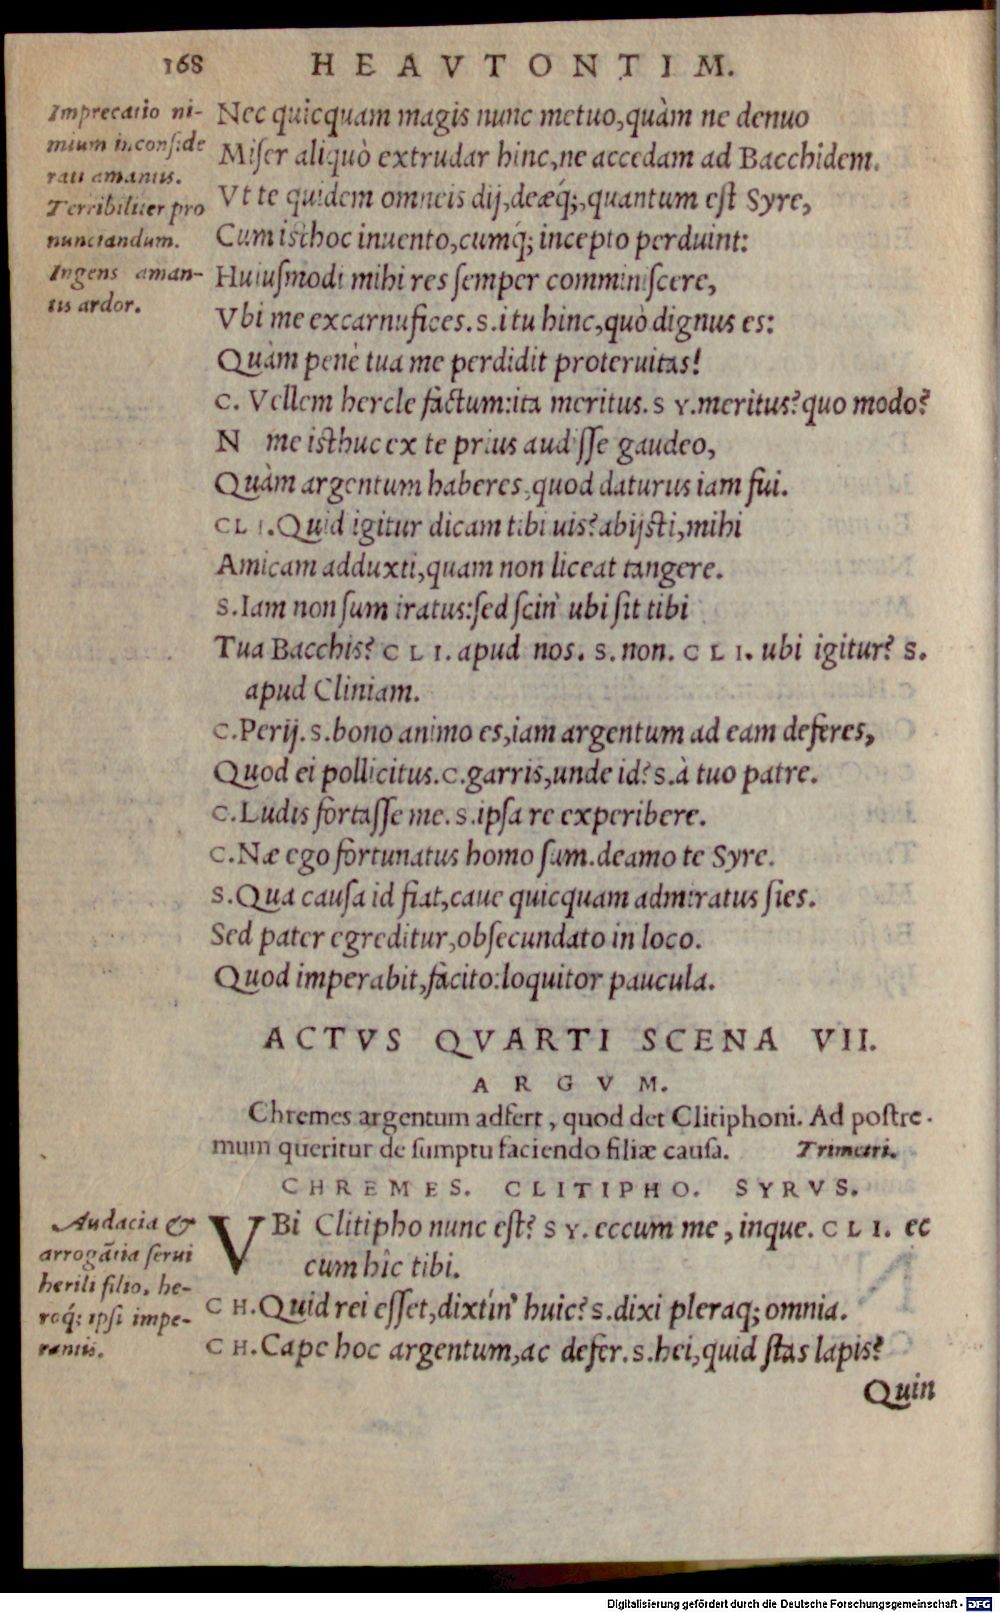 168 HEAVTONTIM.
Imprecatio ni-
mium inconside
rati amantis.
Terribiliter pro
nunctandum.
Ingens aman-
tis ardor.
Nec quicquam magis nunc metuo,quàm ne denuo
Miſer aliquò extrudar hinc,ne accedam ad Bacchidem.
Vt te quidem omneis dij,deæq́;,quantum eſt Syre,
Cum iſthoc inuento,cumq́; incepto perduint:
Huiuſmodi mihi res ſemper comminiſcere,
Vbi me excarnufices.S.i tu hinc,quò dignus es:
Quàm penè tua me perdidit proteruitas!
C. Vellem hercle factum:ita meritus.S Y.meritus?quo modo?
N me iſthuc ex te prius audiſſe gaudeo,
Quàm argentum haberes,quod daturus iam fui.
CLI.Quid igitur dicam tibi uis?abijſti,mihi
Amicam adduxti,quam non liceat tangere.
S.Iam non ſum iratus:ſed ſcin' ubi ſit tibi
Tua Bacchis? CLI. apud nos. S. non. CLI. ubi igitur? S.
apud Cliniam.
C.Perij.S.bono animo es,iam argentum ad eam deferes,
Quod ei pollicitus.C.garris,unde id?S.à tuo patre.
C.Ludis fortaſſe me.S.ipſa re experibere.
C.Næ ego fortunatus homo ſum.deamo te Syre.
S.Qua cauſa id fiat,caue quicquam admiratus ſies.
Sed pater egreditur,obſecundato in loco.
Quod imperabit,facito:loquitor paucula.
ACTVS QVARTI SCENA VII.
ARGVM.
Chremes argentum adfert, quod det Clitiphoni. Ad poſtre-
mum queritur de ſumptu faciendo filiæ cauſa. Trimetri.
CHREMES. CLITIPHO. SYRVS.
Audacia &
arrogātia ſerui
herili filio, he-
roq́; ipſi impe-
rantis.
VBi Clitipho nunc eſt? S Y. eccum me, inque. CLI. ec
cum hîc tibi.
CH.Quid rei eſſet,dixtin' huic?S.dixi pleraq; omnia.
CH.Cape hoc argentum,ac defer.S.hei,quid ſtas lapis?
Quin
Digitalisierung gefördert durch die Deutsche Forschungsgemeinschaft - DFG